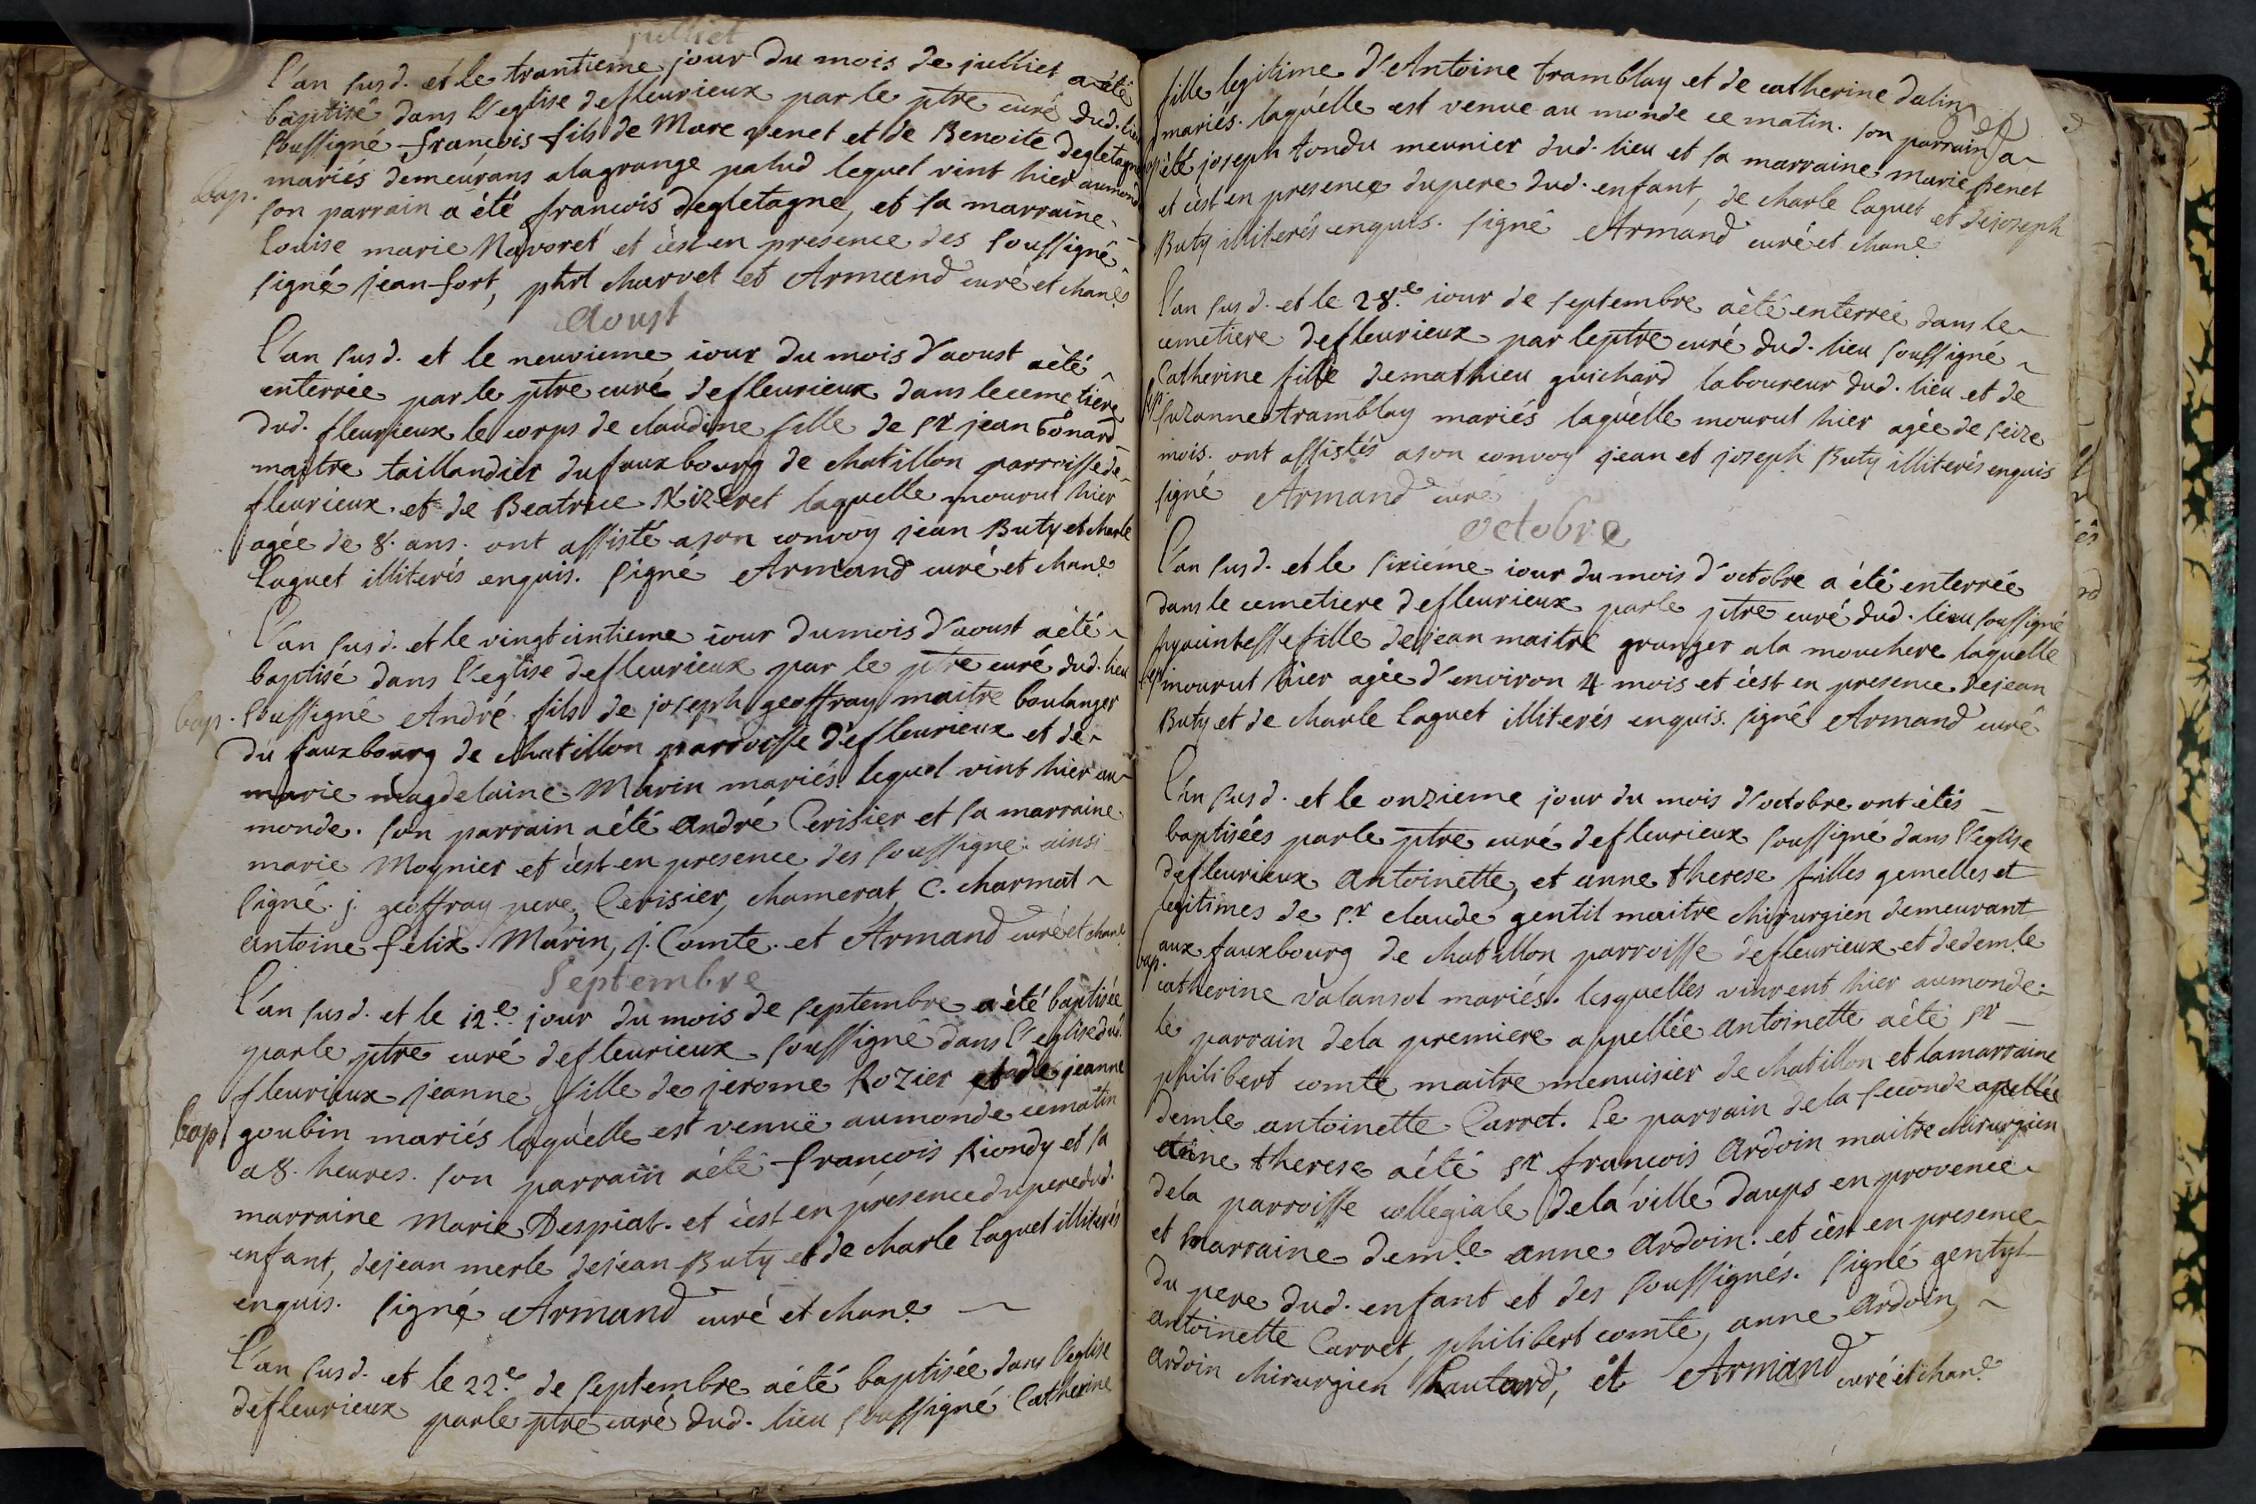 julliet
L'an susd. et le trantieme jour du mois de julliet a été
baptisé dans l'eglise de fleurieux par le ptre curé dud. lieu
soussigné francois fils de Marc penet et de Benoite degletagne
mariés demeurans a la grange palud lequel vint hier au monde
bap.
son parrain a été francois degletagne, et sa marraine
Louise marie Navoret et c'est en presence des soussigné
signé jean-fort, phrt charvet et Armand curé et chane
Aoust
L'an susd. et le neuvieme iour du mois d'aoust a été
enterrée par le ptre curé de fleurieux dans le cemetiere
dud. fleurieux le corps de claudine fille de sr jean bonard
maitre taillandier du fauxbourg de chatillon parroisse de
fleurieux. et de Beatrice Rizeret laquelle mourut hier
agée de 8. ans. ont assisté a son convoy jean Buty et charle
Laguet illiterés enquis. signé Armand curé et chane
L'an susd. et le vingt cintieme iour du mois d'aoust a été
baptisé dans l'eglise de fleurieux par le ptre curé dud. lieu
bap. soussigné André fils de joseph geoffray maitre boulanger
du fauxbourg de chatillon parroisse de fleurieux et de
marie magdelaine Marin mariés lequel vint hier au
monde. son parrain a été andré Cerisier et sa marraine
marie Moynier et c'est en presence des soussigné. ainsi
signé. j. geoffray pere, Cerisier, chamerat, C. charmat
antoine felix Marin, j. Comte. et Armand curé et chane
Septembre
L'an susd. et le 12.e jour du mois de septembre a été baptisée
par le ptre curé de fleurieux soussigné dans l'eglise dud.
fleurieux jeanne fille de jerome Rozier et de jeanne
bap goubin mariés laquelle est venuë au monde ce matin
a 8. heures. son parrain a été francois Riondy et sa
marraine Marie Despiat. et c'est en presence du pere dud.
enfant, de jean merle de jean Buty et de charle laguet illiterés
enquis. signé Armand curé et chane
L'an susd. et le 22.e de septembre a été baptisée dans l'eglise
de fleurieux par le ptre curé dud. lieu soussigné Catherine
fille legitime d'Antoine tramblay et de catherine dalin
mariés. laquelle est venue au monde ce matin. son parrain a
été joseph tondu meunier dud. lieu et sa marraine marie penet
et c'est en presence du pere dud. enfant, de charle laguet et de joseph
Buty illiterés enquis. signé Armand curé et chane
L'an susd. et le 28.e iour de septembre a été enterrée dans le
cemetiere de fleurieux par le ptre curé dud. lieu soussigné
Catherine fille de mathieu guichard laboureur dud. lieu et de
suzanne tramblay mariés laquelle mourut hier agée de seize
mois. ont assistés a son convoy jean et joseph Buty illiterés enquis
signé Armand curé
Octobre
L'an susd. et le sixiéme iour du mois d'octobre a été enterrée
dans le cemetiere de fleurieux par le ptre curé dud. lieu soussigné
hyacintesse fille de jean maitre granger a la mouchere laquelle
mourut hier agée d'environ 4 mois et c'est en presence de jean
Buty et de charle laguet illiterés enquis. signé Armand curé
L'an susd. et le onzieme jour du mois d'octobre ont étés
baptisées par le ptre curé de fleurieux soussigné dans l'eglise
de fleurieux antoinette, et anne therese filles gemelles et
legitimes de s.r claude gentil maitre chirurgien demeurant
aux fauxbourg de chatillon parroisse de fleurieux et de demle
bap.
catherine valansot mariés. lesquelles vinrent hier au monde.
le parrain de la premiere appellée antoinette a été sr
philibert comte maitre menuisier de chatillon et la marraine
demle antoinette Carret. le parrain de la seconde apellée
anne therese a été sr francois Ardoin maitre chirurgien
de la parroisse collegiale de la ville daups en provence
et marraine demle anne Ardoin. et c'est en presence
du pere dud. enfant et des soussignés. signé gentyl
antoinette Carret, philibert comte, anne Ardoin,
Ardoin chirurgien hautard, et Armand curé et chane